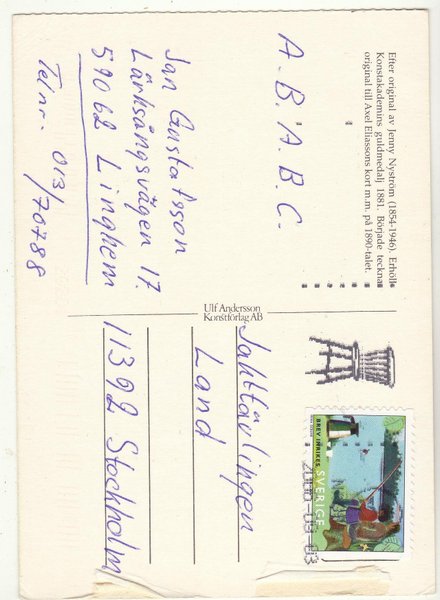 Efter original av Jenny Nyström (1854-1946). Erhöll
Konstakademins guldmedalj 1881. Började teckna
original till Axel Eliassons kort m.m. på 1890-talet.
A. B. A. B. C.
Jan Gustafsson
Lärksångsvägen 17.
59062 Linghem
Telnr. 013/
/70788
Ulf Andersson
Konstförlag AB
BREV INRIKES
SVERIGE
Jakttävlingen
Land
11392 Stockholm